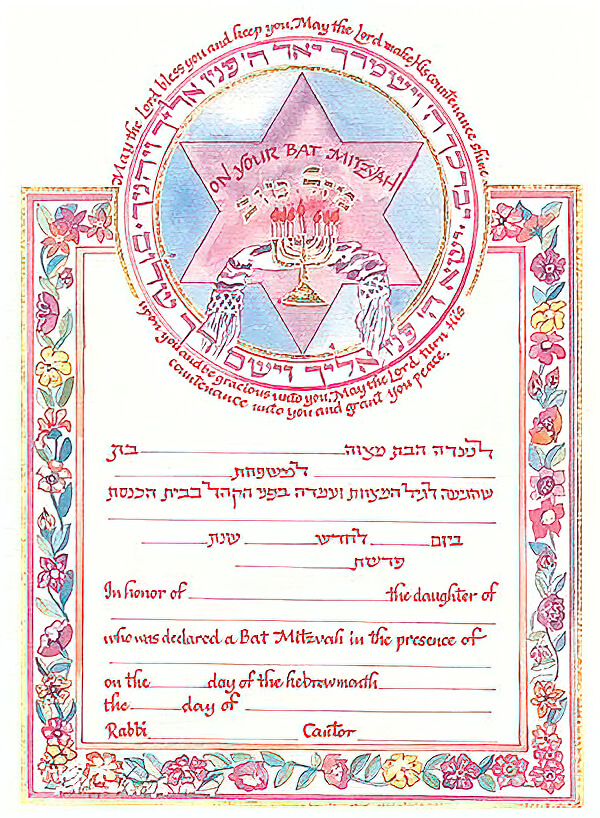 May the Lord bless you and keep you. May the Lord make His countenance shine
upon you and be gracious unto you. May the Lord turn His
countenance unto you and grant you peace.
יברכך ה' וישמרך יאר ה' פניו אליך ויחנך ישא ה' פניו אליך וישם לך שלום
ON YOUR BAT MITZVAH
לנערה הבת מצוה בת
למשפחת
שהגיעה לגיל המצוות ועמדה בפני הקהל בבית הכנסת
ביום לחדש שנת
פרשת
In honor of the daughter of
who was declared a Bat Mitzvah in the presence of
on the day of the hebrew month
the day of
Rabbi Cantor